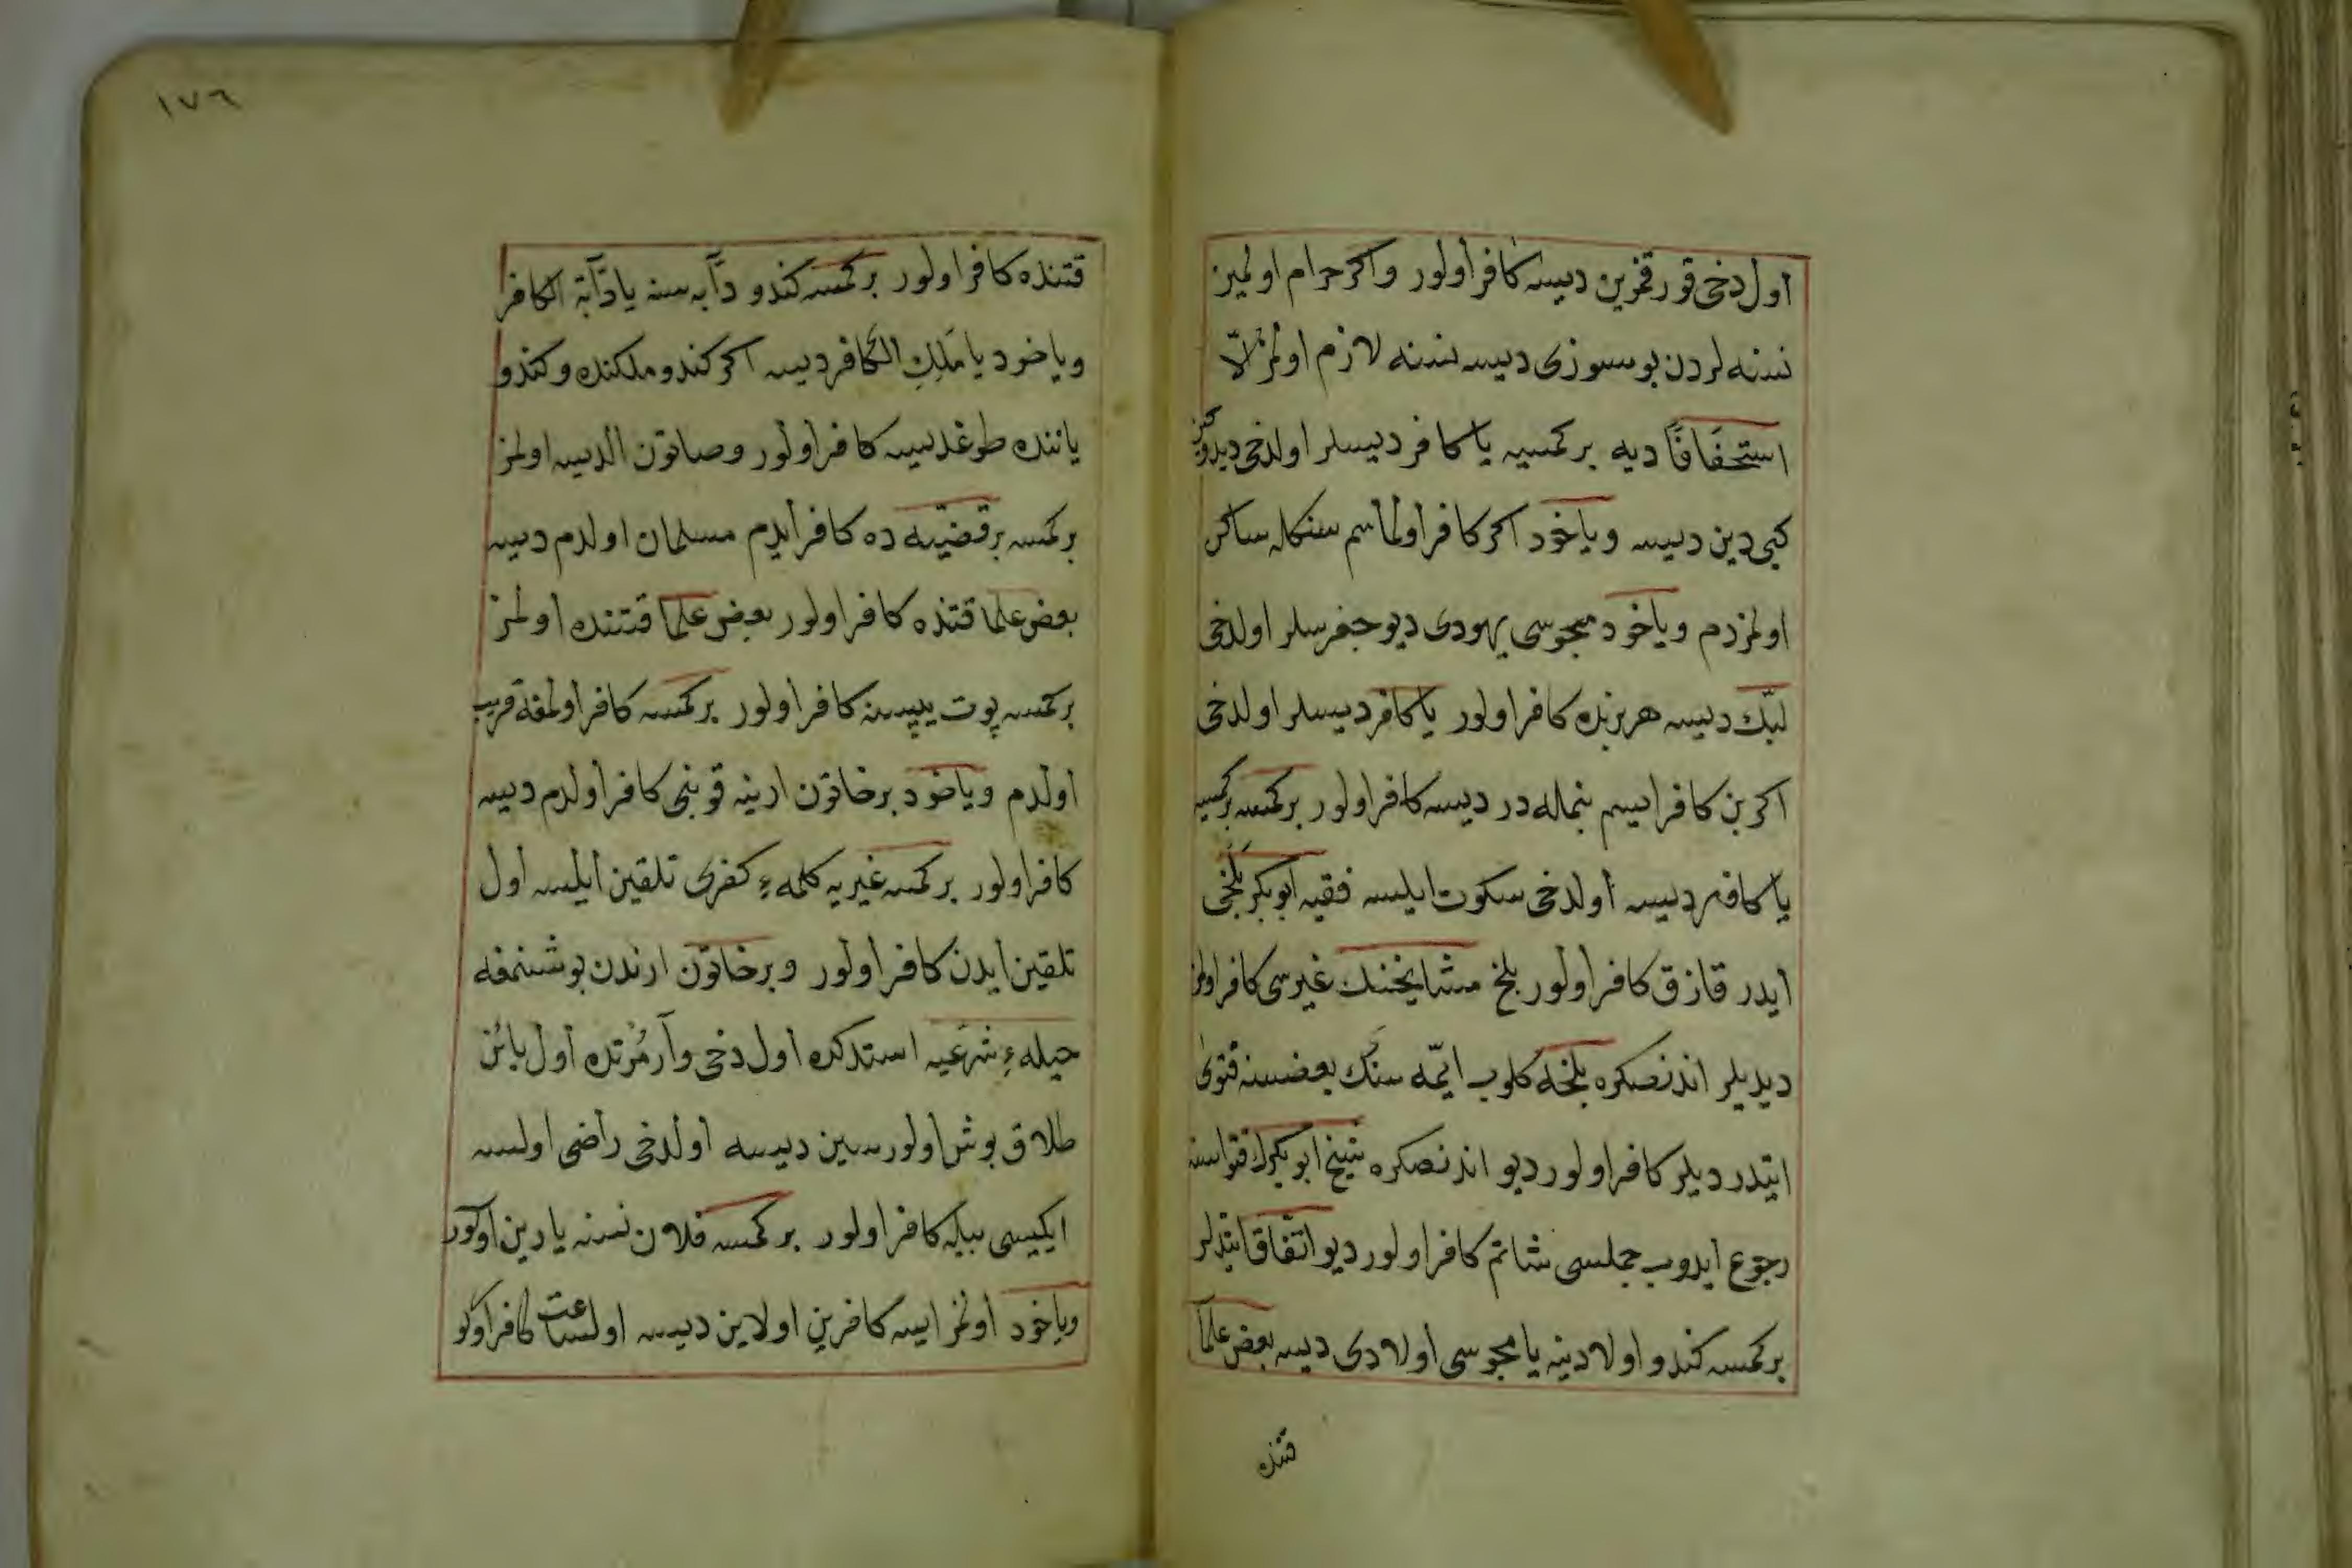 اول دخی قورقمزین دیسه کافر اولور واکر حرام اولمین
نسنه لردن بو سوزی دیسه نسنه لازم اولمز الّا
استخفافًا دیه برکمسیه یا کافر دیسلر اولدخی دیدوکز
کبی دین دیسه ویاخود اکر کافر اولماسم سنکله ساکن
اولمزدم ویاخود مجوسی یهودی دیو جغرسلر اولدخی
لبّک دیسه هر برنده کافر اولور یا کافر دیسلر اولدخی
اکر بن کافر ایسم بنماله در دیسه کافر اولور برکمسه برکمسیه
یا کافر دیسه اولدخی سکوت ایلسه فقیه ابو بکر بَلْخی
ایدر قازق کافر اولور بلخ مشایخنک غیرسی کافر اولمز
دیدیلر اندنصکره بلخه کلوب ایمّه سنک بعضسنه فتوی
ایتدردیلر کافر اولور دیو اندنصکره شیخ ابو بکرک فتواسنه
رجوع ایدوب جملسی شاتم کافر اولور دیو اتّفاق ایتدلر
برکمسه کندو اولادینه یا مجوسی اولادی دیسه بعض علمآ
قتنده
١٧٦
قتنده کافر اولور برکمسه کندو دآبه سنه یا دآبّة الکافر
ویاخود یا مَلِكِ الکَافر دیسه اکر کندو ملکنده وکندو
یاننده طوغدیسه کافر اولور وصاتون الدیسه اولمز
برکمسه بر قضیّه ده کافر ایدم مسلمان اولدم دیسه
بعض علما قتنده کافر اولور بعض علما قتنده اولمز
برکمسه پوت یپسنه کافر اولور برکمسه کافر اولمغه قریب
اولدم ویاخود بر خاتون ارینه قو بنی کافر اولدم دیسه
کافر اولور برکمسه غیریه کلمهٔ کفری تلقین ایلسه اول
تلقین ایدن کافر اولور وبر خاتون ارندن بوشنمغه
حیلهٔ شرعیه استدکده اول دخی وآر مُرتده اول بائن
طلاق بوش اولورسین دیسه اولدخی راضی اولسه
ایکیسی بیله کافر اولور برکمسه فلان نسنه یارین اولور
ویاخود اولمز ایسه کافرین اولاین دیسه اولساعت کافر اولو